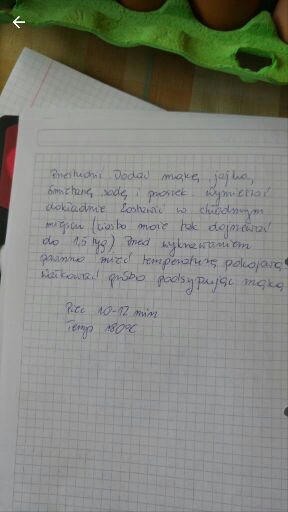 Przestudzić Dodać mąkę, jajka,
śmietanę, sodę i proszek. wymieszać
dokładnie Zostawić w chłodnym
miejscu (ciasto może tak dojrzewać
do 1,5 tyg) Przed wykrawaniem
powinno mieć temperaturę pokojową
Wałkować grubo podsypując mąką
Piec 10-12 min
Temp 180°C